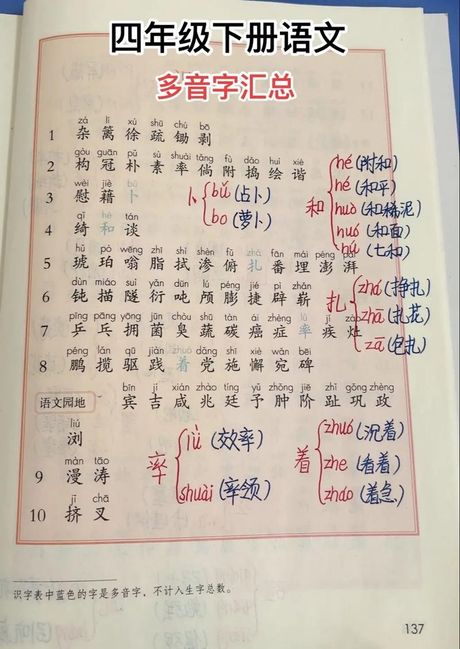 四年级下册语文
多音字汇总
zá lí xú shū chú bō
1 杂 篱 徐 疏 锄 剥
gòu guān pǔ sù shuài tǎng fù dǎo huì xié
2 构 冠 朴 素 率 倘 附 捣 绘 谐
wèi jiè bǔ
3 慰 藉 卜
qǐ hé tán
4 绮 和 谈
hǔ pò wēng zhī shì shèn fǔ zhā fān mái péng pài
5 琥 珀 嗡 脂 拭 渗 俯 扎 番 埋 澎 湃
dùn miáo suí yǎn dūn lú péng jié pì zhǎn
6 钝 描 隧 衍 吨 颅 膨 捷 辟 崭
pīng pāng yōng jūn chòu shū tàn ái zhèng lǜ jí zào
7 乒 乓 拥 菌 臭 蔬 碳 癌 症 率 疾 灶
péng lǎn qū jiàn zhuó dǎng shī xiè wǎn bēi
8 鹏 揽 驱 践 着 党 施 懈 宛 碑
bīn jí xián zhào tíng yǔ zhǒng jiē zhǐ gǒng zhèng
语文园地 宾 吉 咸 兆 廷 予 肿 阶 趾 巩 政
liú
浏
màn tāo
9 漫 涛
jǐ chā
10 挤 叉
卜 bǔ (占卜)
bo (萝卜)
和 hé (附和)
hé (和平)
huò (和稀泥)
huó (和面)
hú (七和)
扎 zhá (挣扎)
zhā (扎花)
zā (包扎)
率 lǜ (效率)
shuài (率领)
着 zhuó (沉着)
zhe (看着)
zháo (着急)
识字表中蓝色的字是多音字，不计入生字总数。
137